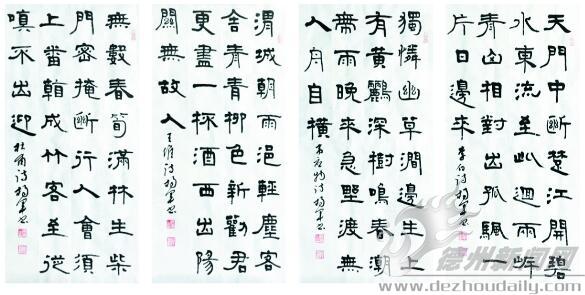 天門中斷楚江開碧
水東流至此迴兩岸
青山相對出孤颿一
片日邊來 李白詩楊軍書
獨憐幽草澗邊生上
有黃鸝深樹鳴春潮
帶雨晚來急野渡無
人舟自橫 韋應物詩楊軍書
渭城朝雨浥輕塵客
舍青青柳色新勸君
更盡一杯酒西出陽
關無故人 王維詩楊軍書
無數春筍滿林生柴
門密掩斷行人會須
上番看成竹客至從
嗔不出迎 杜甫詩楊軍書
德州新闻网
www.dezhoudaily.com